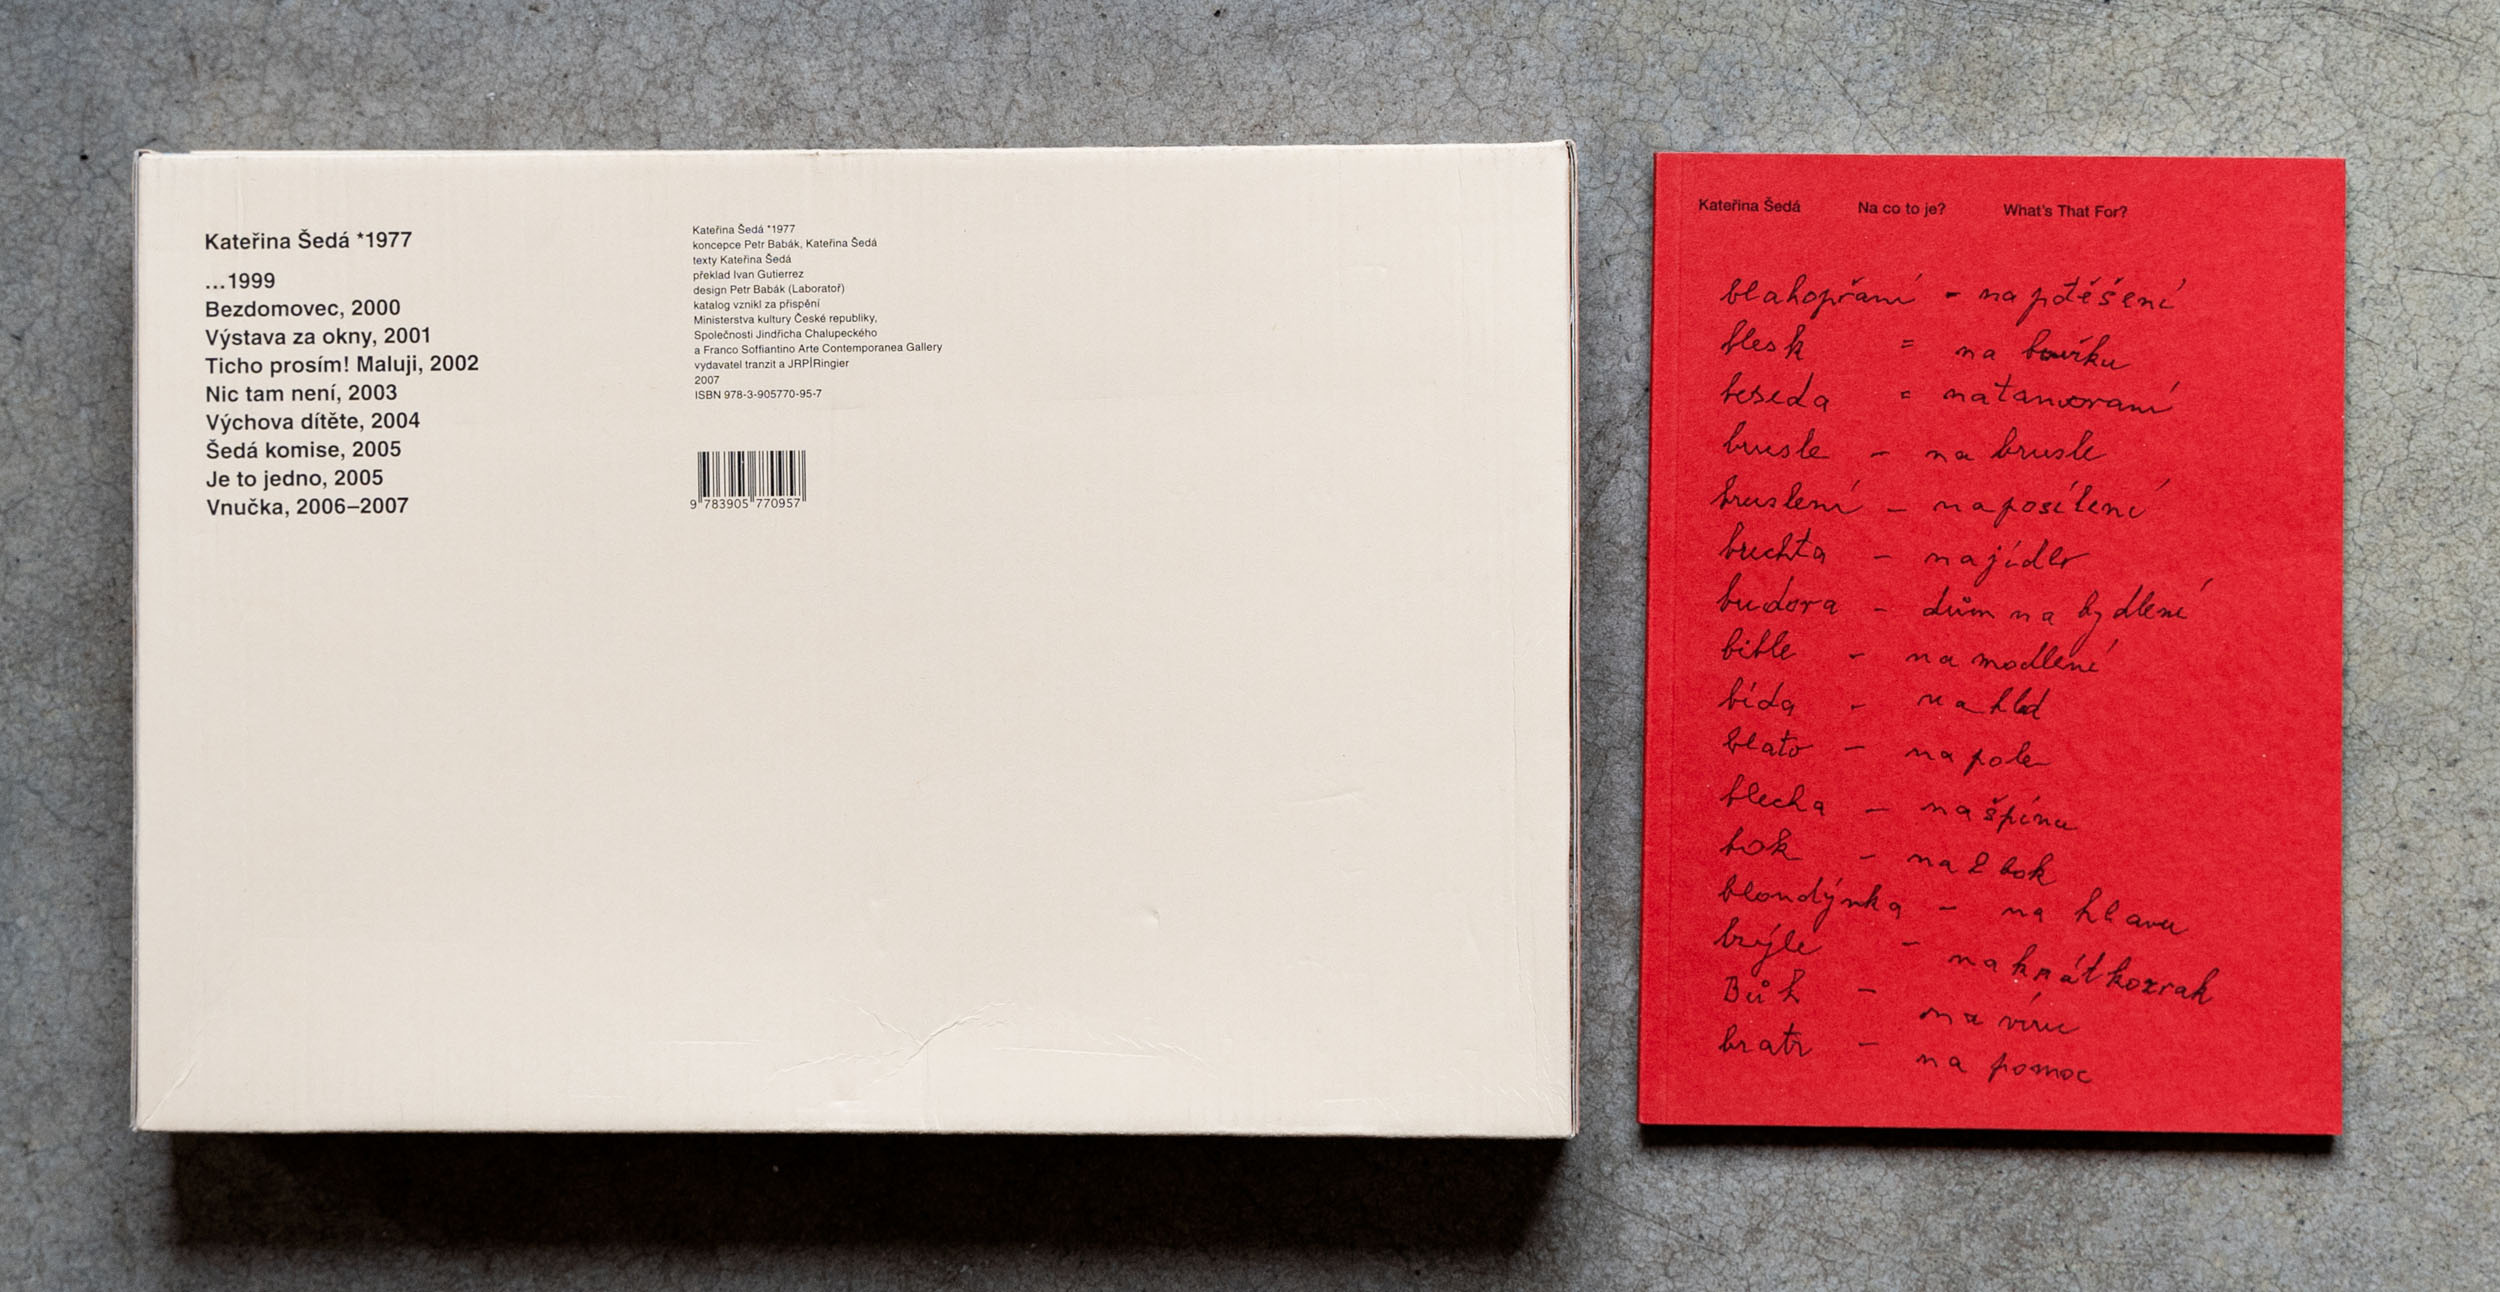 Kateřina Šedá *1977
...1999
Bezdomovec, 2000
Výstava za okny, 2001
Ticho prosím! Maluji, 2002
Nic tam není, 2003
Výchova dítěte, 2004
Šedá komise, 2005
Je to jedno, 2005
Vnučka, 2006–2007
Kateřina Šedá *1977
koncepce Petr Babák, Kateřina Šedá
texty Kateřina Šedá
překlad Ivan Gutierrez
design Petr Babák (Laboratoř)
katalog vznikl za přispění
Ministerstva kultury České republiky,
Společnosti Jindřicha Chalupeckého
a Franco Soffiantino Arte Contemporanea Gallery
vydavatel tranzit a JRP|Ringier
2007
ISBN 978-3-905770-95-7
9 783905 770957
Kateřina Šedá Na co to je? What's That For?
blahopřaní - na potěšení
blesk = na
beseda =
brusle - na brusle
bruslení - na posílení
buchta - na jídlo
budova - dům na bydlení
bible - na modlení
bída - na hlad
blato - na pole
blecha - na špínu
bok - na 2 bok
blondýnka - na hlavu
brýle - na krátkozrak
Bůh - na víru
bratr - na pomoc